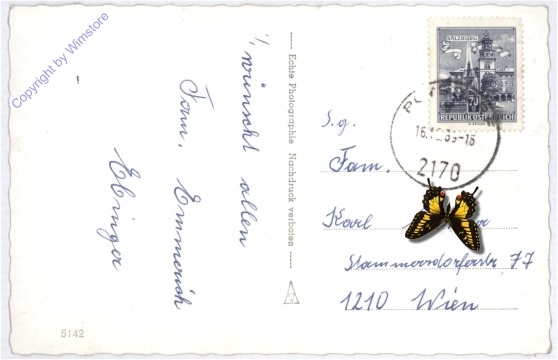 Copyright by Wimstore
wünscht allen
Fam. Emmerich
Ebinger
Echte Photographie Nachdruck verboten
5142
SALZBURG
REPUBLIK ÖSTERREICH
2170
S.g.
Fam.
Karl
Stammersdorferstr 77
1210 Wien